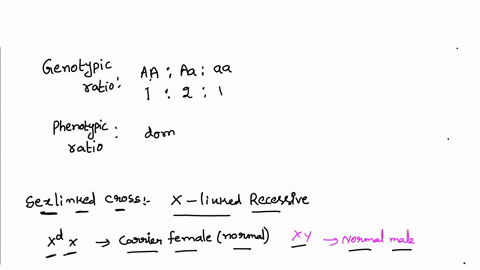 Genotypic ratio: AA : Aa : aa
1 : 2 : 1
Phenotypic ratio : dom
Sexlinked cross:- X-linked Recessive
Xᵈ X → Carrier female (normal) XY → Normal male